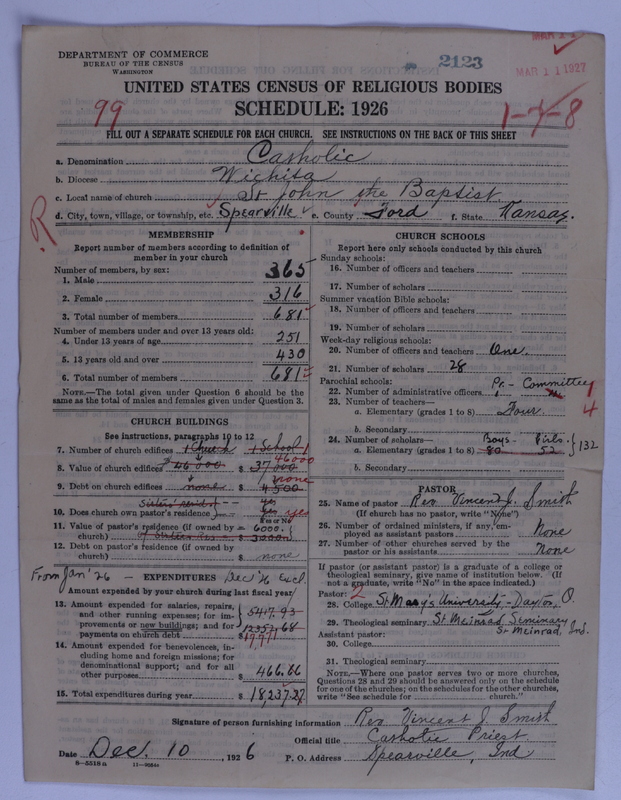 MAR 11 1927
2123
DEPARTMENT OF COMMERCE
BUREAU OF THE CENSUS
WASHINGTON
UNITED STATES CENSUS OF RELIGIOUS BODIES
SCHEDULE: 1926
99
1-7-8
FILL OUT A SEPARATE SCHEDULE FOR EACH CHURCH. SEE INSTRUCTIONS ON THE BACK OF THIS SHEET
a. Denomination Catholic
b. Diocese Wichita
c. Local name of church St John the Baptist.
d. City, town, village, or township, etc. Spearville e. County Ford f. State Kansas.
R
MEMBERSHIP
Report number of members according to definition of
member in your church
Number of members, by sex:
1. Male 365
2. Female 316
3. Total number of members 681
Number of members under and over 13 years old:
4. Under 13 years of age 251
5. 13 years old and over 430
6. Total number of members 681
NOTE.—The total given under Question 6 should be
the same as the total of males and females given under Question 3.
CHURCH BUILDINGS
See instructions, paragraphs 10 to 12
7. Number of church edifices 1 Church 1 School 1
46000
8. Value of church edifices 46000 $ 37000
none
9. Debt on church edifices none $ 4500
10. Does church own pastor's residence? yes yes
11. Value of pastor's residence (if owned by
church) 6000. $ 3000
12. Debt on pastor's residence (if owned by
church) $ none
From Jan '26 — EXPENDITURES Dec '26 Excl.
Amount expended by your church during last fiscal year
13. Amount expended for salaries, repairs,
and other running expenses; for im-
provements or new buildings; and for
payments on church debt $ 5417.93
12353.68
17,771
14. Amount expended for benevolences, in-
cluding home and foreign missions; for
denominational support; and for all
other purposes $ 466.66
15. Total expenditures during year $ 18,237.27
CHURCH SCHOOLS
Report here only schools conducted by this church
Sunday schools:
16. Number of officers and teachers
17. Number of scholars
Summer vacation Bible schools:
18. Number of officers and teachers
19. Number of scholars
Week-day religious schools:
20. Number of officers and teachers One.
21. Number of scholars 28
Parochial schools: Pr. - Committee
22. Number of administrative officers 1
23. Number of teachers—
a. Elementary (grades 1 to 8) Four. 4
b. Secondary
24. Number of scholars— Boys - Girls.
a. Elementary (grades 1 to 8) 80 52 } 132
b. Secondary
PASTOR
25. Name of pastor Rev. Vincent J. Smith
(If church has no pastor, write "None")
26. Number of ordained ministers, if any, em-
ployed as assistant pastors None
27. Number of other churches served by the
pastor or his assistants None
If pastor (or assistant pastor) is a graduate of a college or
theological seminary, give name of institution below. (If
not a graduate, write "No" in the space indicated.)
Pastor: 2
28. College St Mary's University - Dayton, O
29. Theological seminary St Meinrad Seminary
St Meinrad, Ind.
Assistant pastor:
30. College
31. Theological seminary
NOTE.—Where one pastor serves two or more churches,
Questions 28 and 29 should be answered only on the schedule
for one of the churches; on the schedules for the other churches,
write "See schedule for church."
Signature of person furnishing information Rev. Vincent J. Smith
Official title Catholic Priest
Date Dec. 10, 1926 P. O. Address Spearville, Ind
8—5518 a